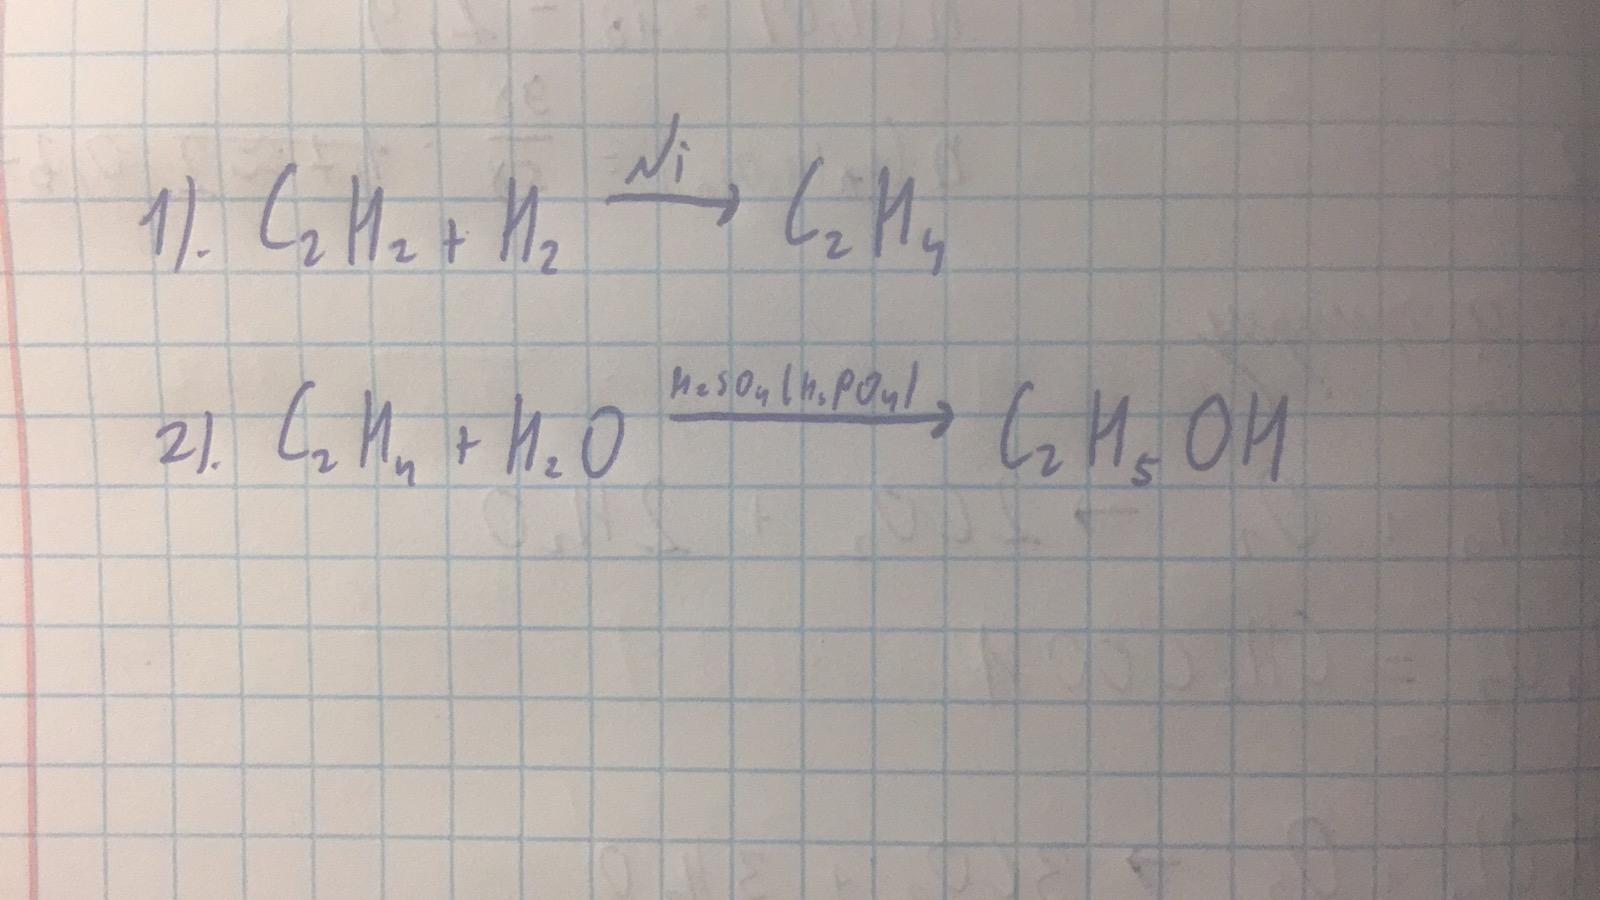 1). C₂H₂ + H₂ —Ni→ C₂H₄
2). C₂H₄ + H₂O —H₂SO₄(H₃PO₄)→ C₂H₅OH